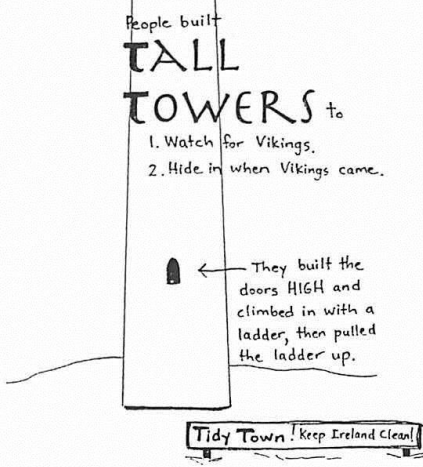 People built
TALL
TOWERS to
1. Watch for Vikings.
2. Hide in when Vikings came.
They built the
doors HIGH and
climbed in with a
ladder, then pulled
the ladder up.
Tidy Town! Keep Ireland Clean!